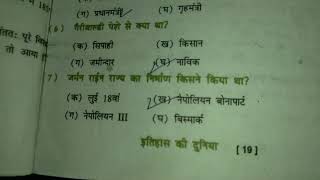 (ग) प्रधानमंत्री (घ) गृहमंत्री
(6) गैरीबाल्डी पेशे से क्या था?
(क) सिपाही (ख) किसान
(ग) जमींदार (घ) नाविक
7) जर्मन राईन राज्य का निर्माण किसने किया था?
(क) लुई 18वां (ख) नेपोलियन बोनापार्ट
(ग) नेपोलियन III (घ) बिस्मार्क
इतिहास की दुनिया [19]
में 185
पूरे
तो आया